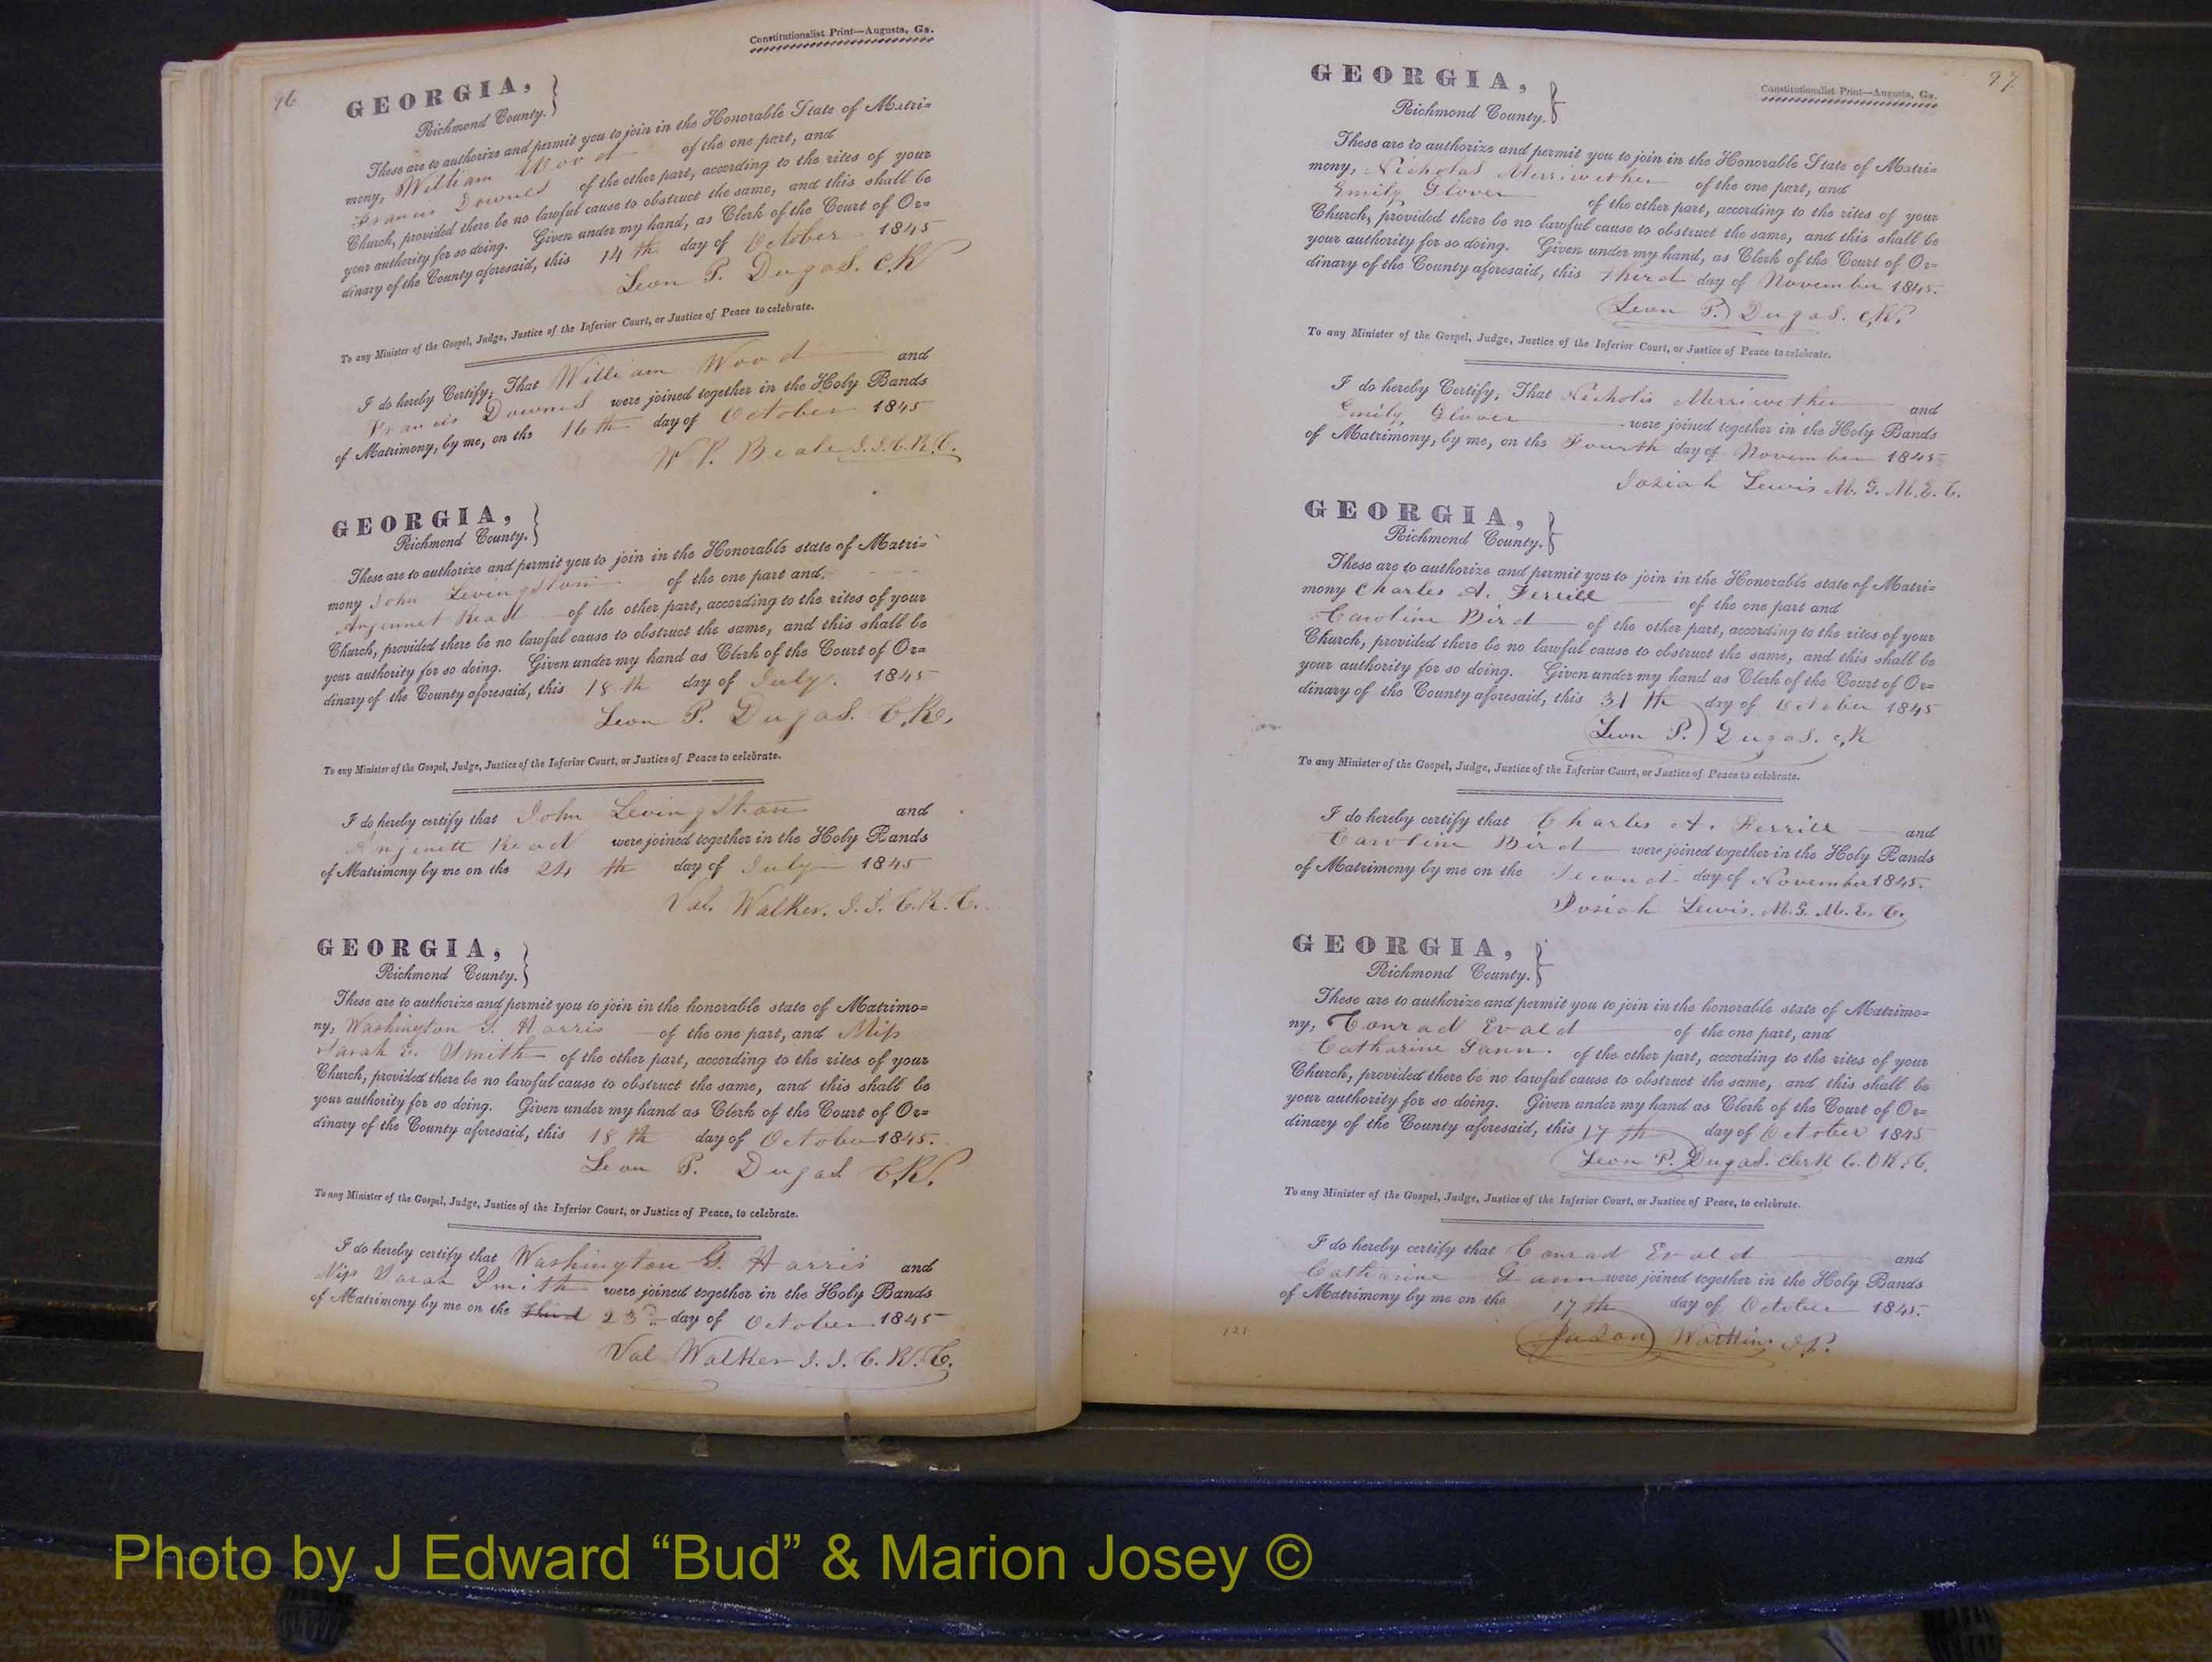 96
Constitutionalist Print—Augusta, Ga.
GEORGIA,
Richmond County.
These are to authorize and permit you to join in the Honorable State of Matri=
mony, William Wood of the one part, and
Francis Downes of the other part, according to the rites of your
Church, provided there be no lawful cause to obstruct the same, and this shall be
your authority for so doing. Given under my hand, as Clerk of the Court of Or=
dinary of the County aforesaid, this 14th day of October 1845
Leon P. Dugas. C,K
To any Minister of the Gospel, Judge, Justice of the Inferior Court, or Justice of Peace to celebrate.
I do hereby Certify, That William Wood and
Francis Downes were joined together in the Holy Bands
of Matrimony, by me, on the 16th day of October 1845
W. P. Beale J.I.C.R.C.
GEORGIA,
Richmond County.
These are to authorize and permit you to join in the Honorable state of Matri=
mony John Levingston of the one part and
Anjennet Read of the other part, according to the rites of your
Church, provided there be no lawful cause to obstruct the same, and this shall be
your authority for so doing. Given under my hand as Clerk of the Court of Or=
dinary of the County aforesaid, this 18th day of July. 1845
Leon P. Dugas. C,K,
To any Minister of the Gospel, Judge, Justice of the Inferior Court, or Justice of Peace to celebrate.
I do hereby certify that John Levingston and
Anjenett Read were joined together in the Holy Bands
of Matrimony by me on the 24 th day of July 1845
Val. Walker. J.I.C.R.C.
GEORGIA,
Richmond County.
These are to authorize and permit you to join in the honorable state of Matrimo=
ny, Washington G. Harris of the one part, and Miss
Sarah E. Smith of the other part, according to the rites of your
Church, provided there be no lawful cause to obstruct the same, and this shall be
your authority for so doing. Given under my hand as Clerk of the Court of Or=
dinary of the County aforesaid, this 18th day of October 1845.
Leon P. Dugas C,K,
To any Minister of the Gospel, Judge, Justice of the Inferior Court, or Justice of Peace, to celebrate.
I do hereby certify that Washington G. Harris and
Miss Sarah Smith were joined together in the Holy Bands
of Matrimony by me on the Third 23d day of October 1845
Val Walker J.I.C.R.C.
97
Constitutionalist Print—Augusta, Ga.
GEORGIA,
Richmond County.
These are to authorize and permit you to join in the Honorable State of Matri=
mony, Nicholas Merriwether of the one part, and
Emily Glover of the other part, according to the rites of your
Church, provided there be no lawful cause to obstruct the same, and this shall be
your authority for so doing. Given under my hand, as Clerk of the Court of Or=
dinary of the County aforesaid, this third day of November 1845.
Leon P. Dugas. C,K,
To any Minister of the Gospel, Judge, Justice of the Inferior Court, or Justice of Peace to celebrate.
I do hereby Certify, That Nicholis Merriwether and
Emily Glover were joined together in the Holy Bands
of Matrimony, by me, on the Fourth day of November 1845
Josiah Lewis M.G.M.E.C.
GEORGIA,
Richmond County.
These are to authorize and permit you to join in the Honorable state of Matri=
mony Charles A. Ferrill of the one part and
Caroline Bird of the other part, according to the rites of your
Church, provided there be no lawful cause to obstruct the same, and this shall be
your authority for so doing. Given under my hand as Clerk of the Court of Or=
dinary of the County aforesaid, this 31th day of October 1845
Leon P. Dugas. C,K
To any Minister of the Gospel, Judge, Justice of the Inferior Court, or Justice of Peace to celebrate.
I do hereby certify that Charles A. Ferrill and
Caroline Bird were joined together in the Holy Bands
of Matrimony by me on the Second day of November 1845.
Josiah Lewis. M.G.M.E.C.
GEORGIA,
Richmond County.
These are to authorize and permit you to join in the honorable state of Matrimo=
ny, Conrad Evald of the one part, and
Catharine Gann. of the other part, according to the rites of your
Church, provided there be no lawful cause to obstruct the same, and this shall be
your authority for so doing. Given under my hand as Clerk of the Court of Or=
dinary of the County aforesaid, this 17th day of October 1845
Leon P. Dugas. Clerk C.O.R.C.
To any Minister of the Gospel, Judge, Justice of the Inferior Court, or Justice of Peace, to celebrate.
I do hereby certify that Conrad Evald and
Catharine Gann were joined together in the Holy Bands
of Matrimony by me on the 17th day of October 1845.
121
Watkins J.P.
Photo by J Edward “Bud” & Marion Josey ©